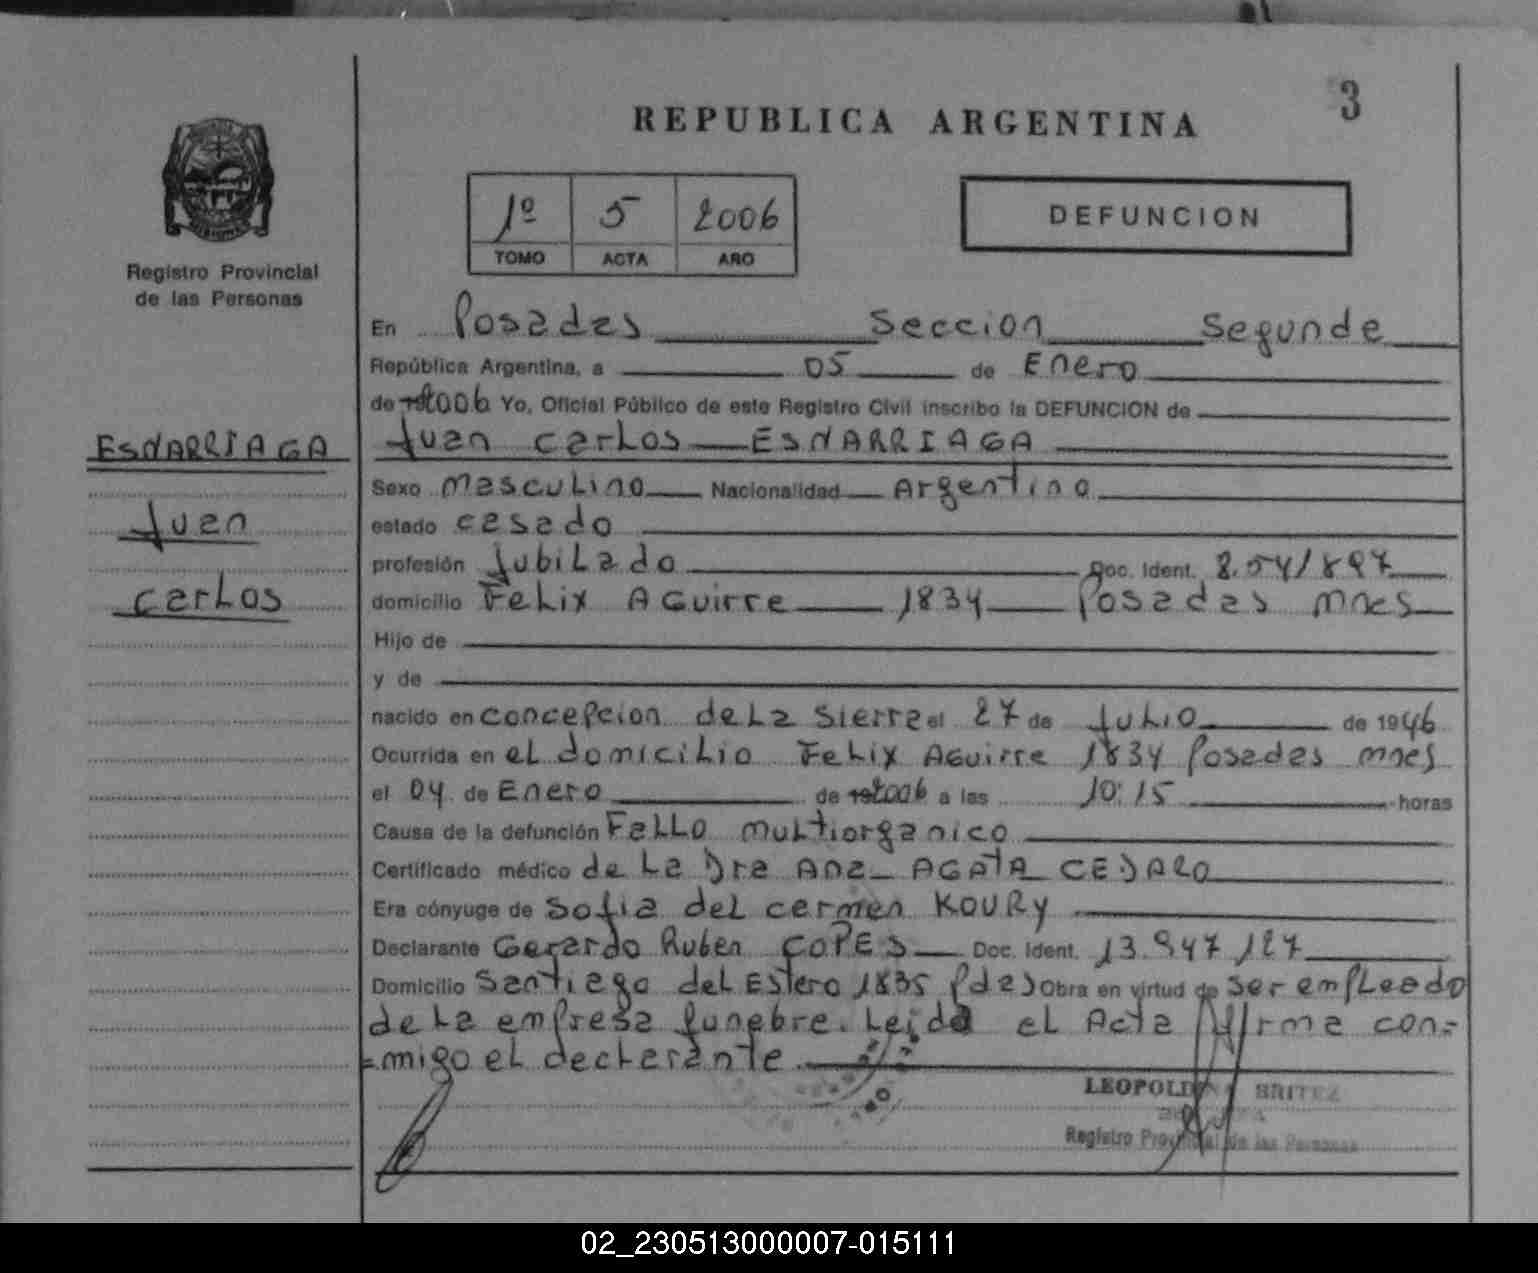 3
REPUBLICA ARGENTINA
1º 5 2006
TOMO ACTA AÑO
DEFUNCION
Registro Provincial
de las Personas
En Posadas Seccion Segunda
República Argentina, a 05 de Enero
de 2006 Yo, Oficial Público de este Registro Civil inscribo la DEFUNCION de
ESNARRIAGA
Juan
Carlos
Juan Carlos ESNARRIAGA
Sexo masculino Nacionalidad Argentina
estado casado
profesión Jubilado Doc. Ident. 8.541897
domicilio Felix Aguirre 1834 Posadas mnes
Hijo de
y de
nacido en concepcion de La Sierra el 27 de Julio de 1946
Ocurrida en el domicilio Felix Aguirre 1834 Posadas mnes
el 04 de Enero de 2006 a las 10:15 horas
Causa de la defunción Fallo multiorganico
Certificado médico de La Dra Ana AGATA CEDARO
Era cónyuge de Sofia del carmen KOURY
Declarante Gerardo Ruben COPES Doc. Ident. 13.947127
Domicilio Santiago del Estero 1835 Pdas Obra en virtud de ser empleado
de La empresa funebre. Leida el Acta firma con=
=migo el declarante
LEOPOLD BRITEZ
Registro Provincial de las Personas
02_230513000007-015111